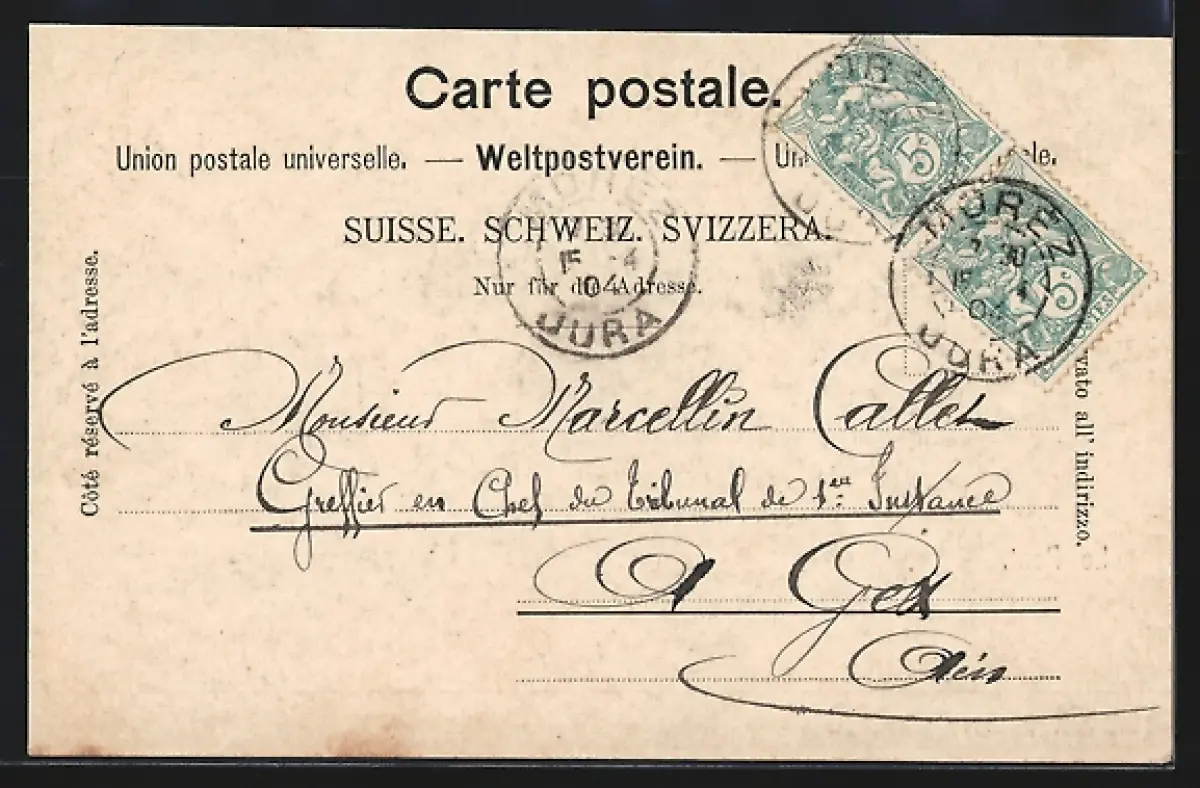 Carte postale.
Union postale universelle. — Weltpostverein. — Un le.
SUISSE. SCHWEIZ. SVIZZERA.
Nur für die Adresse.
Côté réservé à l'adresse.
vato all' indirizzo.
MOREZ
15 -4
04
JURA
MOREZ
JURA
MOREZ
15
04
JURA
5
5
Monsieur Marcellin Callet
Greffier en Chef du Tribunal de 1ère Instance
A Gex
Ain